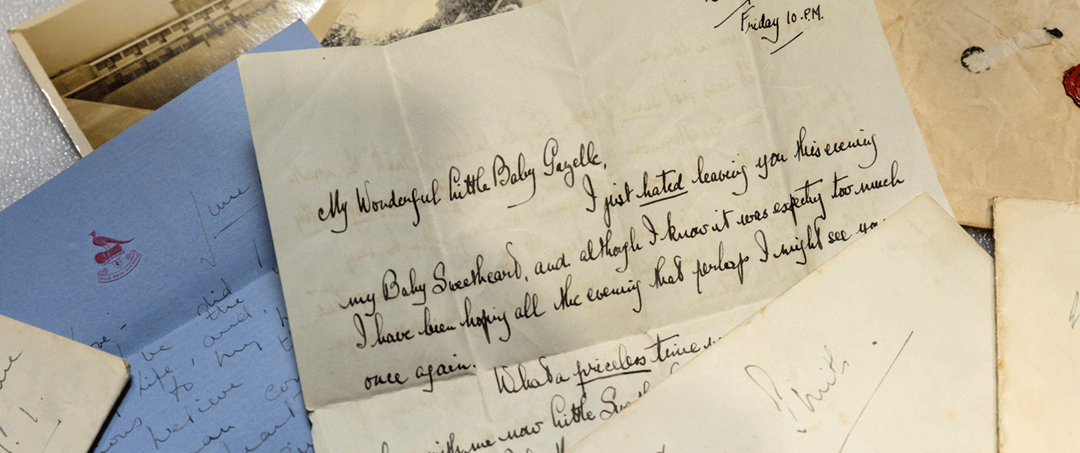 Friday 10.P.M.
My Wonderful Little Baby Gazelle,
I just hated leaving you this evening
my Baby Sweetheart, and although I know it was expecting too much
I have been hoping all the evening that perhaps I might see you
once again. What a priceless time
with me now little
June
did
be the
life, and,
to my
believe
an